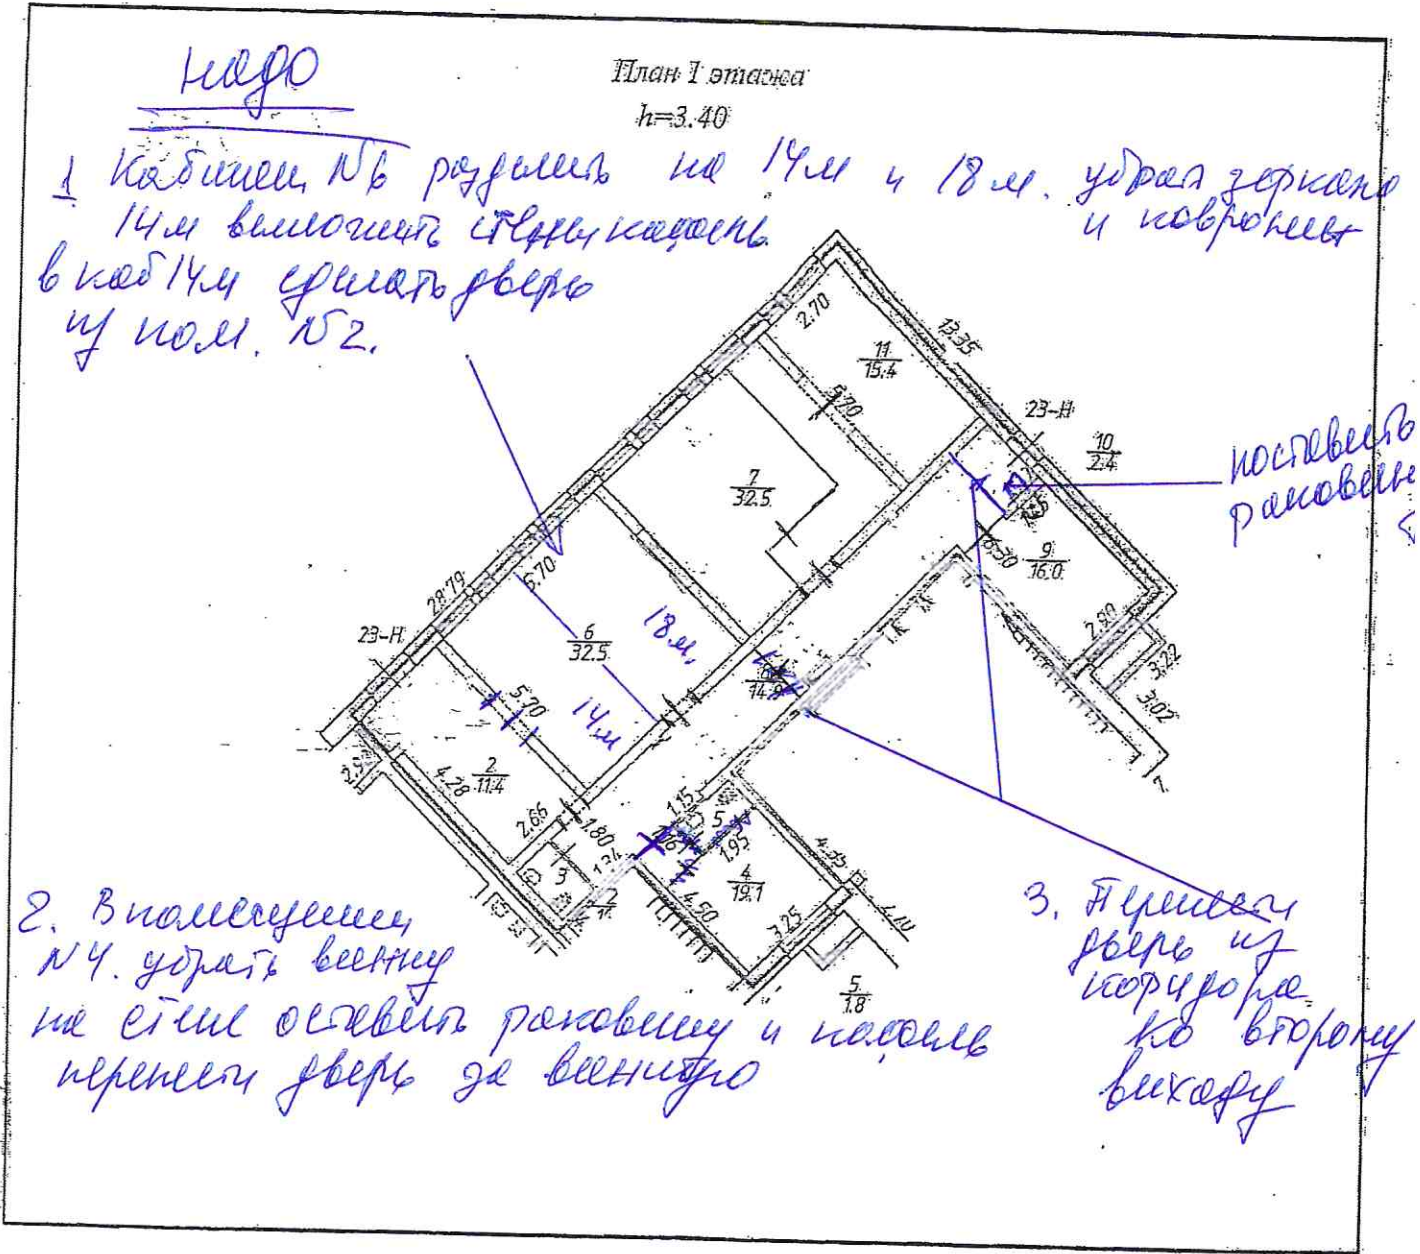 надо
План 1 этажа
h=3.40
1 Кабинет №6 разделить на 14м и 18м. убрат зеркала
и ковролит
14м выложить стены кафель
в каб 14м сделать дверь
из пом. №2.
2.70
13.35
11
15.4
5.70
23-Н
10
2.4
поставить
раковин
7
32.5
9
16.0
6.30
2.90
3.22
3.02
28.79
5.70
23-Н
6
32.5
18м,
14м
14.9
5.70
2
11.4
4.28
2.66
1.80
1.34
3
1.15
5
1.95
4
19.1
4.50
3.25
4.35
5
1.8
2. В помещении
№4. убрать ванну
на стене оставить раковину и кафель
перенести дверь за ванную
3. Перенести
дверь из
коридора
ко второму
выходу